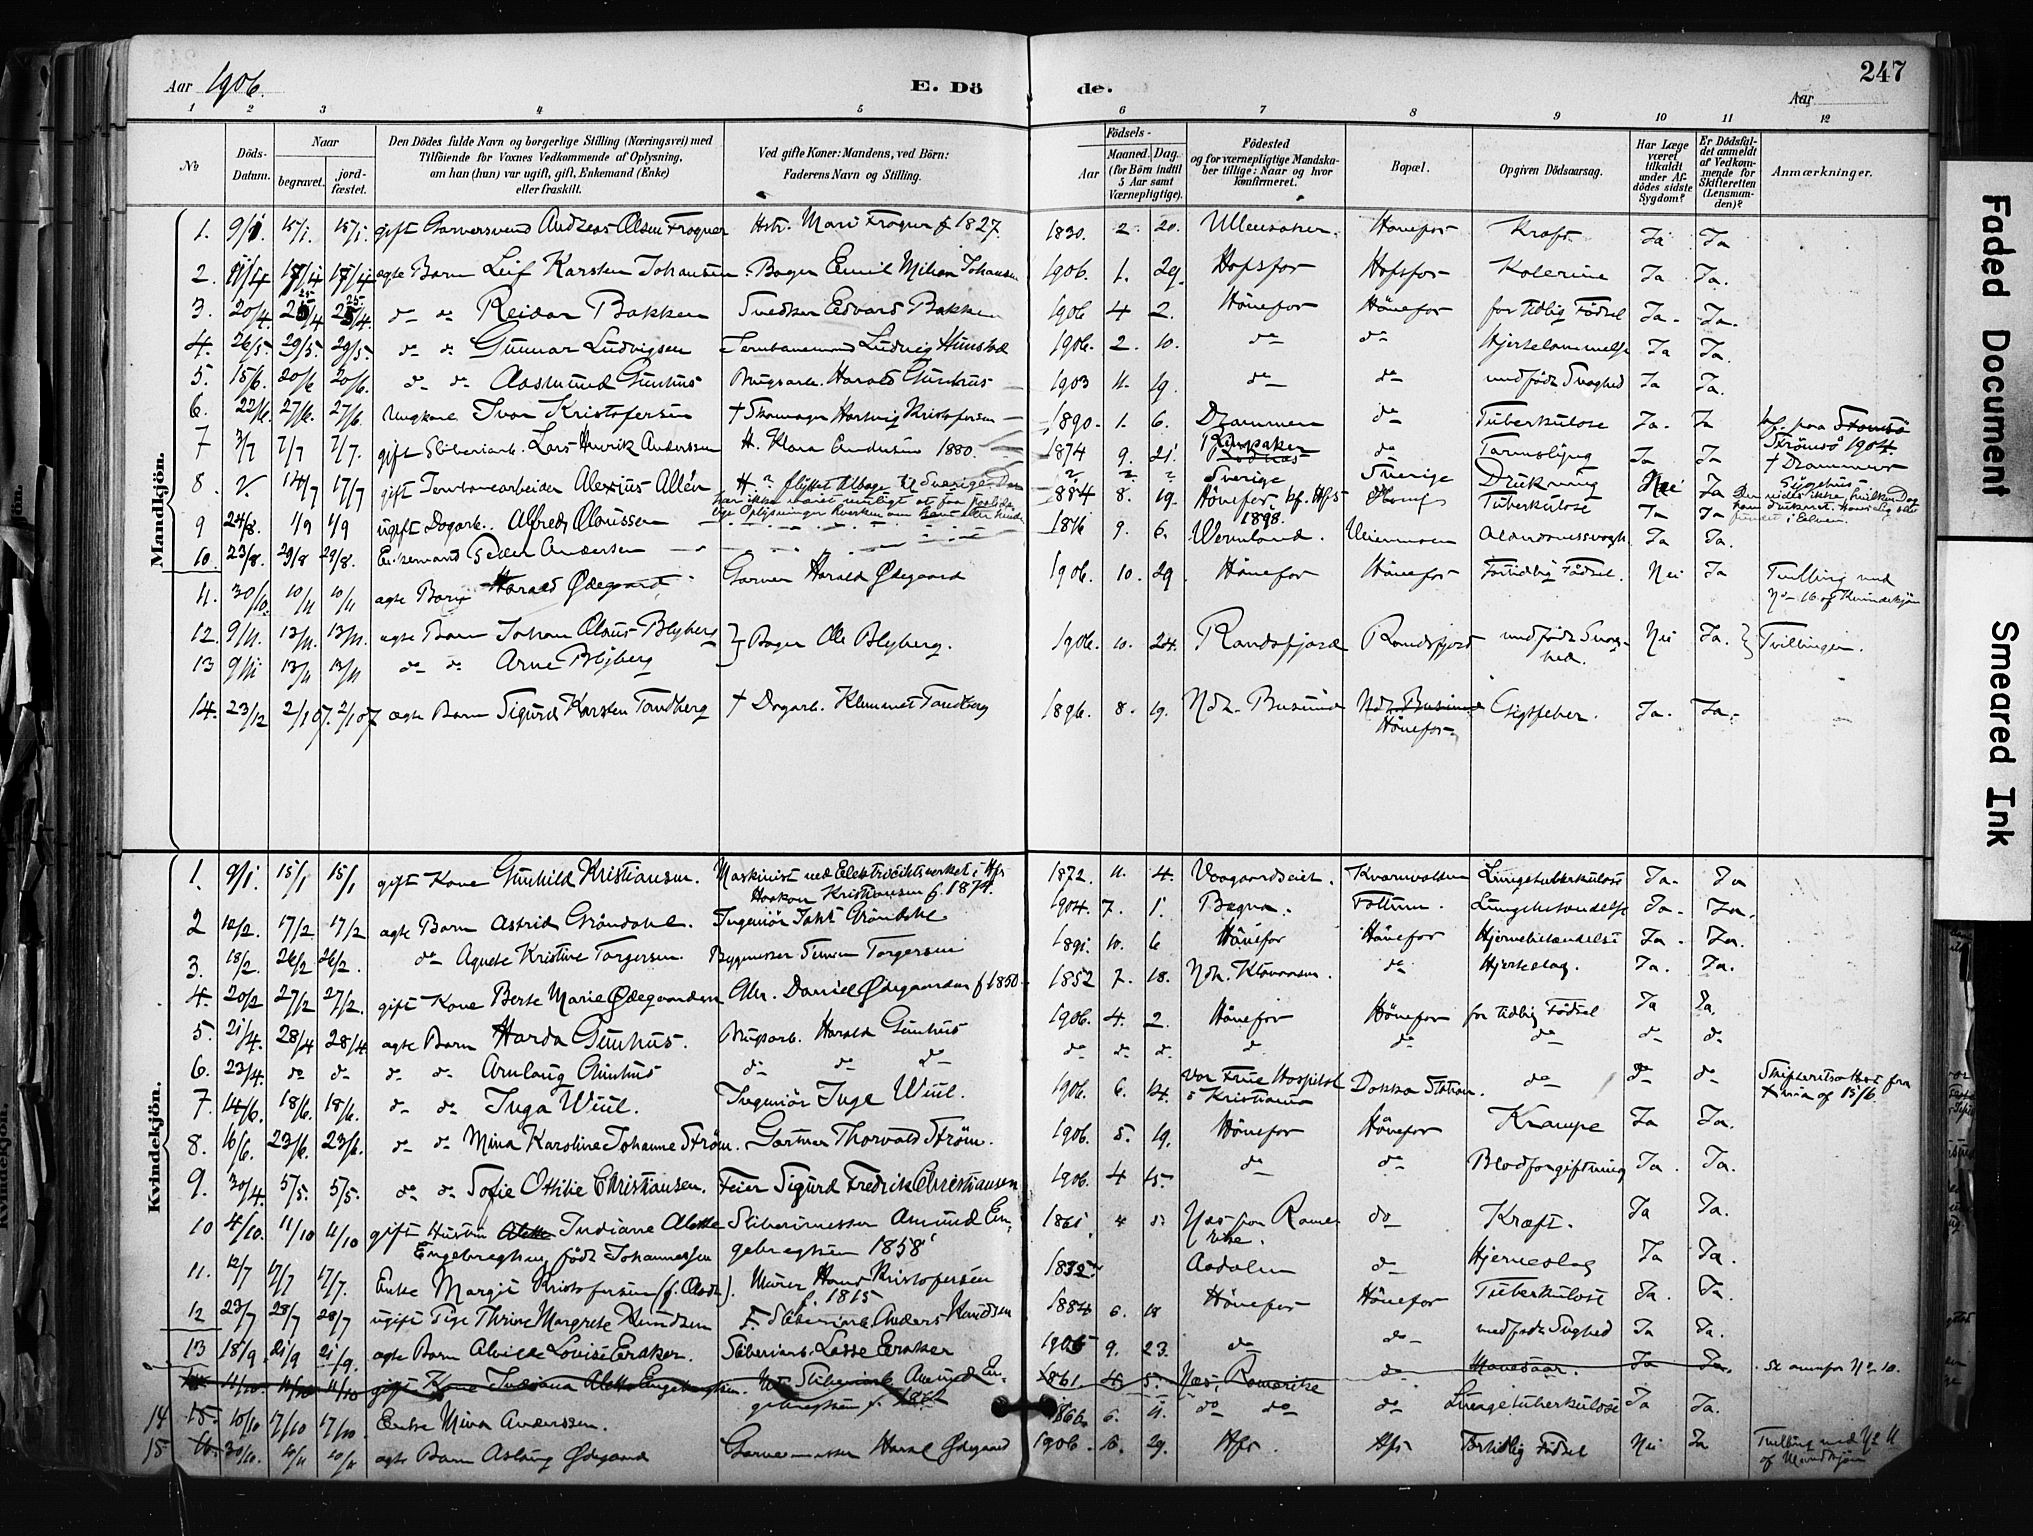 Aar 1906.
E. Döde.
247
Aar
1 2 3 4 5 6 7 8 9 10 11 12
No
Döds-Datum.
Naar begravet. jordfæstet.
Den Dödes fulde Navn og borgerlige Stilling (Næringsvei) med Tilföiende for Voxnes Vedkommende af Oplysning, om han (hun) var ugift, gift, Enkemand (Enke) eller fraskilt.
Ved gifte Koner: Mandens, ved Börn: Faderens Navn og Stilling.
Födsels-
Aar Maaned. Dag. (for Börn indtil 5 Aar samt Værnepligtige).
Födested og for værnepligtige Mandskaber tillige: Naar og hvor konfirmeret.
Bopæl.
Opgiven Dödsaarsag.
Har Læge været tilkaldt under Afdödes sidste Sygdom?
Er Dödsfaldet anmeldt af Vedkommende for Skifteretten (Lensmanden)?
Anmærkninger.
Mandkjön.
1. 9/1 15/1. 15/1. gift Garversvend Andreas Olsen Frogner Hstr. Mari Frogner f 1827. 1830. 2. 20. Ullensaker. Hönefos Kræft. Ja Ja
2. 11/4 17/4 17/4 ægte Barn Leif Karsten Johansen Bager Emil Johansen 1906. 1. 29. Hofsfos Hofsfos Kolerine Ja Ja.
3. 20/4. 25/4 25/4. do do Reidar Bakken Snedker Edvard Bakken 1906 4 2. Hönefos Hönefos for tidlig Födsel Ja. Ja.
4. 26/5. 29/5. 29/5. do do Gunnar Ludvigsen Jernbanemand Ludvig 1906. 2. 10. do do Hjertelammelse Ja Ja.
5. 15/6. 20/6 20/6. do do Aasmund Gunhus Brugsarb. Harald Gunhus 1903 11. 19. do do medfödt Svaghed Ja Ja.
6. 22/6. 27/6. 27/6. Ungkarl Ivar Kristofersen † Skomager Hartvig Kristofersen 1890. 1. 6. Drammen do Tuberkulose Ja. Ja kf. paa Strömsö 1904
7 3/7 7/7 7/7. gift Sliberiarb. Lars Henrik Anderssen H. Klara Andersen 1880. 1874 9. 21. do Tarmslyng Ja Ja † Drammens Sygehus
8. 14/7 17/7 gift Jernbanearbeider Alexius Allén H. ? flyttet tilbage til Sverige. ? ? ? Sverige Sverige Drukning Nei Ja
har ikke været muligt at faa
Oplysninger hverken om ham eller hende
9 24/8. 1/9 1/9 ugift Dagarb. Alfred Olaussen 1884 8. 19. Hönefos kf. Hfs 1898. Tuberkulose Ja Ja
10. 23/8. 29/8 29/8. Enkemand Peder Andersen 1816 9. 6. Wermland. Veienmoen Alderdomssvagh. Ja Ja.
11. 30/10. 10/11 10/11 ægte Barn Harald Ödegaard Garver Harald Ödegaard 1906. 10. 29. Hönefos Hönefos Fortidlig Födsel. Nei Ja Tvilling med No 16 af Kvindekjön
12. 9/11. 13/11. 13/11. ægte Barn Johan Olaus Blyberg } Bager Ole Blyberg. 1906. 10. 24. Randsfjord Randsfjord medfödt Svaghed. Nei Ja. } Tvillinger.
13 9/11 13/11 13/11 do do Arne Blyberg
14. 23/12 2/1 07. 2/1 07 ægte Barn Sigurd Karsten Tandberg † Dagarb. Klemmet Tandberg 1896. 8. 19. Ndr. Busund Ndr. Busund Hönefos Gigtfeber. Ja. Ja.
Kvindekjön.
1. 9/1. 15/1 15/1 gift Kone Gunhild Kristiansen. Maskinist ved Elektricitetsverket i Hfs Haakon Kristiansen f. 1874. 1872. 11. 4. Vaagaardseiet. Kvernvolden Lungetuberkulose Ja. Ja
2 12/2. 17/2. 17/2 ægte Barn Astrid Gröndahl. Ingeniör Gröndahl 1904. 7. 1. Bægna. Follum. Lungebetændelse Ja. Ja.
3. 18/2. 26/2 26/2. do Agnete Kristine Torgersen Bygmester Simen Torgersen 1891. 10. 6 Hönefos Hönefos Hjernebetændelse Ja. Ja.
4. 20/2 27/2 27/2. gift Kone Berte Marie Ödegaarden Arb. Daniel Ödegaarden f 1850. 1852 7. 18. Ndr. do Hjerteslag. Ja. Ja.
5. 21/4. 28/4 28/4 ægte Barn Harda Gunhus. Brugsarb. Harald Gunhus 1906. 4. 2. Hönefos Hönefos for tidlig Födsel Ja Ja,
6. 23/4. do do do do Arnlaug Gunhus do do do do do do do do do do do
7. 14/6. 18/6. 18/6. do do Inga Wiul. Ingeniör Inge Wiul. 1906. 6. 14. Vor Frue Hospital i Kristiania Dokka Station. do do do Skifteretsattest fra af 15/6.
8. 16/6. 23/6. 23/6. do do Mina Karoline Johanne Ström. Gartner Thorvald Ström. 1906. 5. 19. Hönefos Hönefos Krampe Ja Ja.
9. 30/4. 5/5. 5/5. do do Sofie Ottilie Christiansen. Feier Sigurd Fredrik Christiansen 1906. 4 15. do do Blodforgiftning Ja. Ja.
10 4/10. 11/10 11/10 gift Hustru Alette Indiane Alette Engebregtsen född Johannessen Sliberimester Amund Engebregtsen 1858 1861 4 5 Næs paa Romerike. do Kræft. Ja Ja.
11. 12/7 17/7 17/7. Enke Margit Kristofersen Murer Hans Kristofersen f. 1815 1832 Aadalen do Hjerneslag Ja Ja.
12 23/7 28/7 28/7 ugift Pige Thrine Margrete Knudsen F. Sliberiarb. Anders Knudsen 1884 6. 18 Hönefos Hönefos Tuberkulose Ja. Ja.
13 18/9 21/9 21/9. ægte Barn Alvilde Lovise Eraker. Sliberiarb. Lasse Eraker 1905 9. 23. do do medfödt Svaghed Ja Ja.
11/10 11/10 gift Kone Indiana Alette Engebregtsen. Sliberiarb. Amund Engebregtsen f. 1861. 4 5. Næs, Romerike do Mavesaar. Ja Ja. Se ovenfor No 10.
14 15. 10/10 17/10 17/10. Enke Mina Anderssen. 1866. 6. 11. do do do Lungetuberkulose Ja Ja.
15 16. 30/10. 10/11 10/11 ægte Barn Aslaug Ödegaard Garvermester Harald Ödegaard 1906. 10. 29. Hfs. Hfs Fortidlig Födsel Nei Ja Tvilling med No 11 af Mandkjön
Faded Document
Smeared Ink